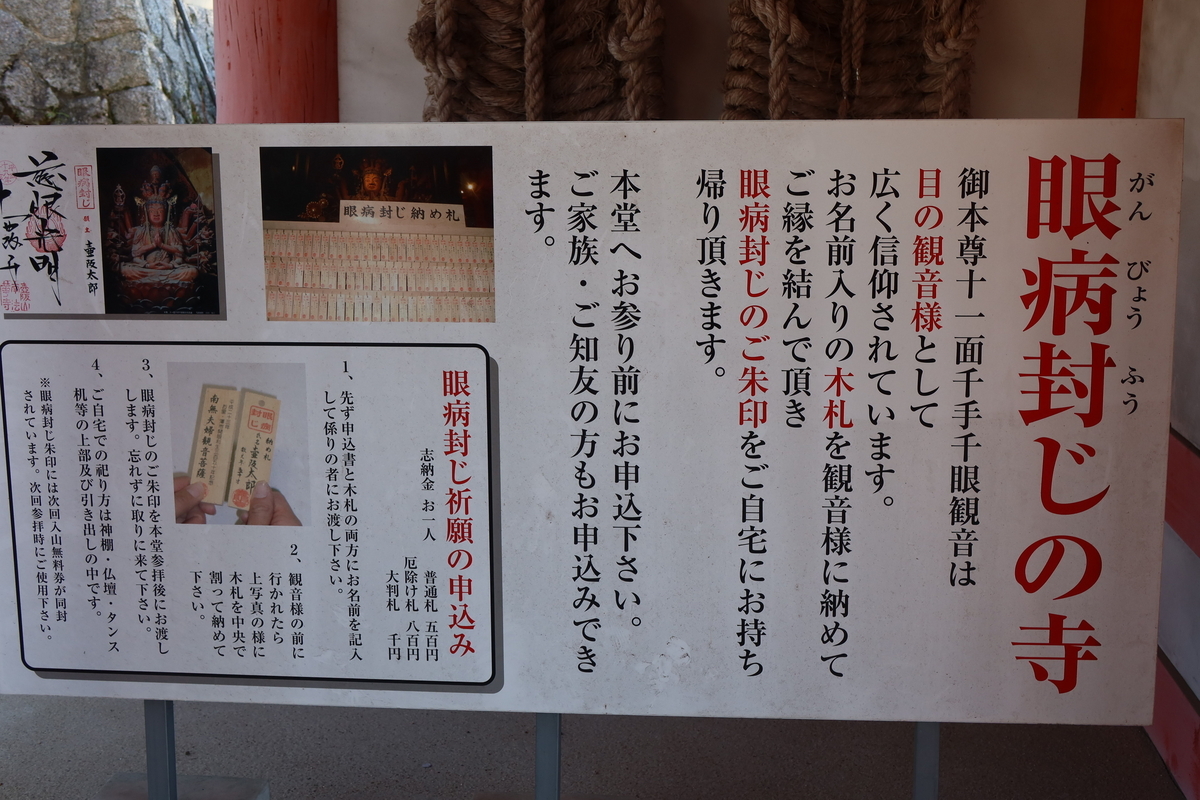 眼病封じの寺
がん びょう ふう
御本尊十一面千手千眼観音は
目の観音様として
広く信仰されています。
お名前入りの木札を観音様に納めて
ご縁を結んで頂き
眼病封じのご朱印をご自宅にお持ち
帰り頂きます。
本堂へお参り前にお申込下さい。
ご家族・ご知友の方もお申込みでき
ます。
眼病封じ納め札
眼病封じ
壷阪太郎
眼病封じ祈願の申込み
志納金 お一人
普通札 五百円
厄除け札 八百円
大判札 千円
1、先ず申込書と木札の両方にお名前を記入
して係りの者にお渡し下さい。
2、観音様の前に
行かれたら
上写真の様に
木札を中央で
割って納めて
下さい。
納め札
眼病封じ
壷阪太郎
南無大悲観音菩薩
3、眼病封じのご朱印を本堂参拝後にお渡し
します。忘れずに取りに来て下さい。
4、ご自宅での祀り方は神棚・仏壇・タンス
机等の上部及び引き出しの中です。
※眼病封じ朱印には次回入山無料券が同封
されています。次回参拝時にご使用下さい。